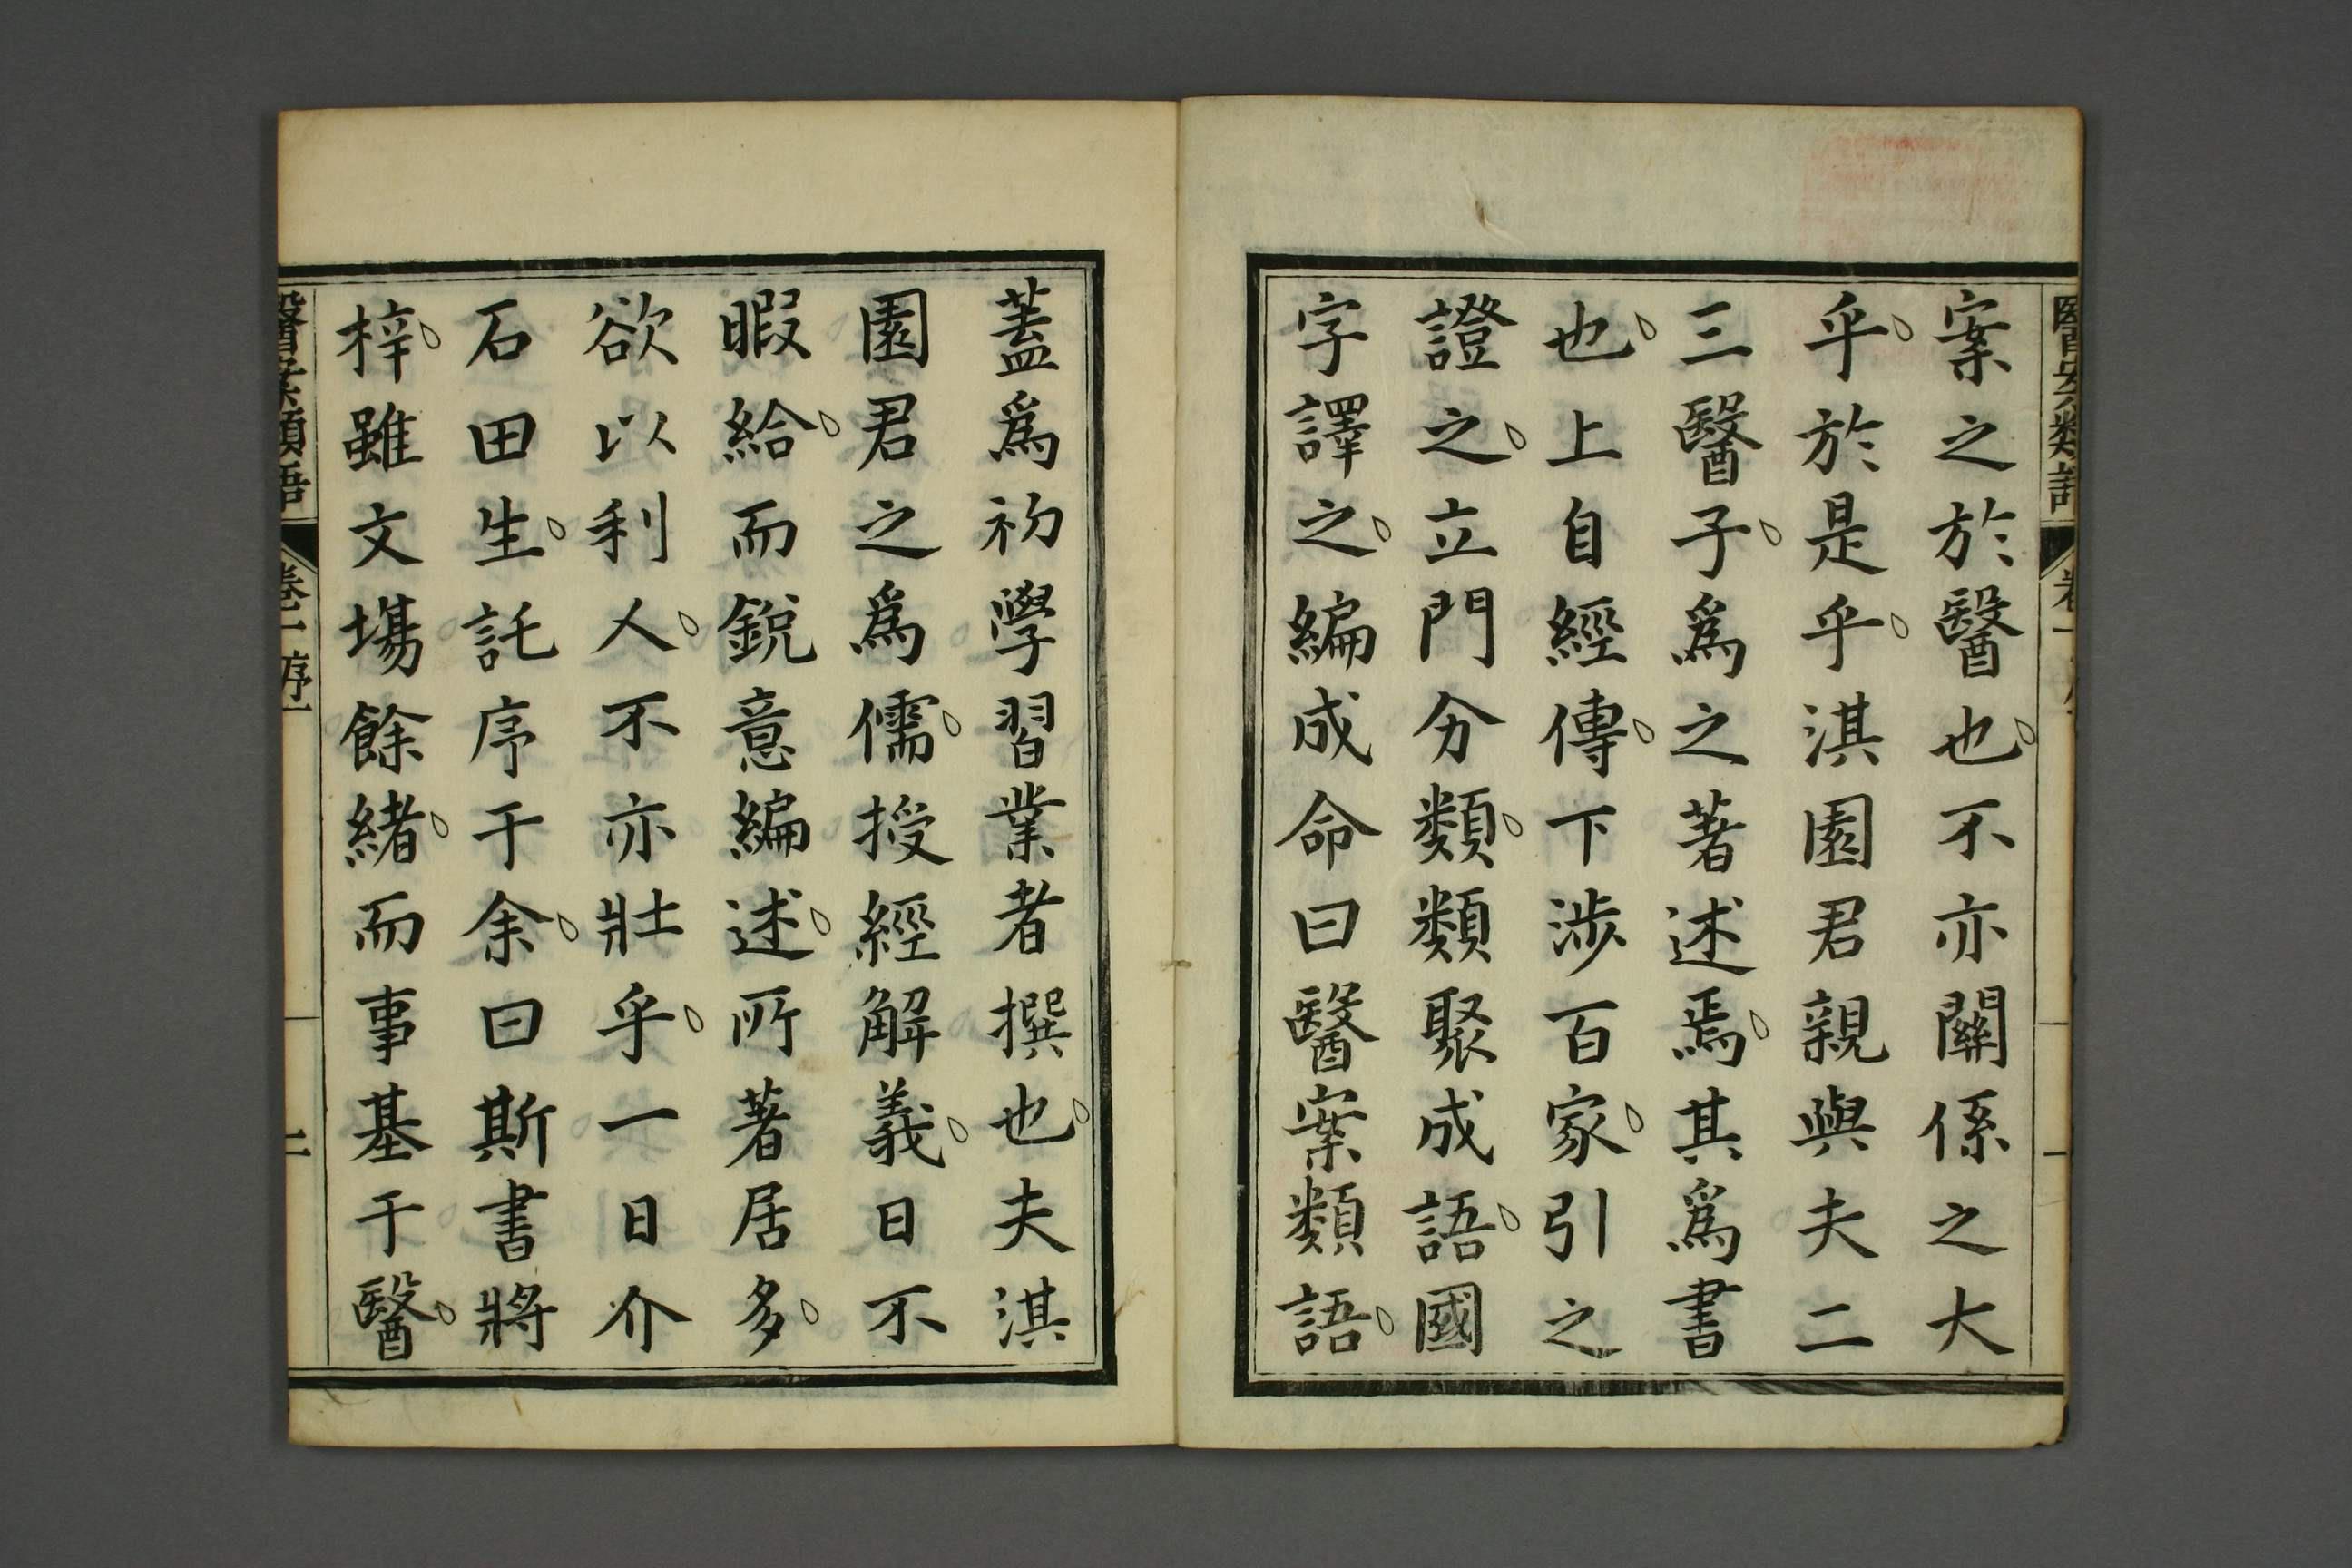 案之於醫也不亦關係之大
乎於是乎淇園君親與夫二
三醫子爲之著述焉其爲書
也上自經傳下涉百家引之
證之立門分類類聚成語國
字譯之編成命曰醫案類語
蓋爲初學習業者撰也夫淇
園君之爲儒授經解義日不
暇給而銳意編述所著居多
欲以利人不亦壯乎一日介
石田生託序于余曰斯書將
梓雖文場餘緒而事基于醫
醫案類語 卷一 序 二